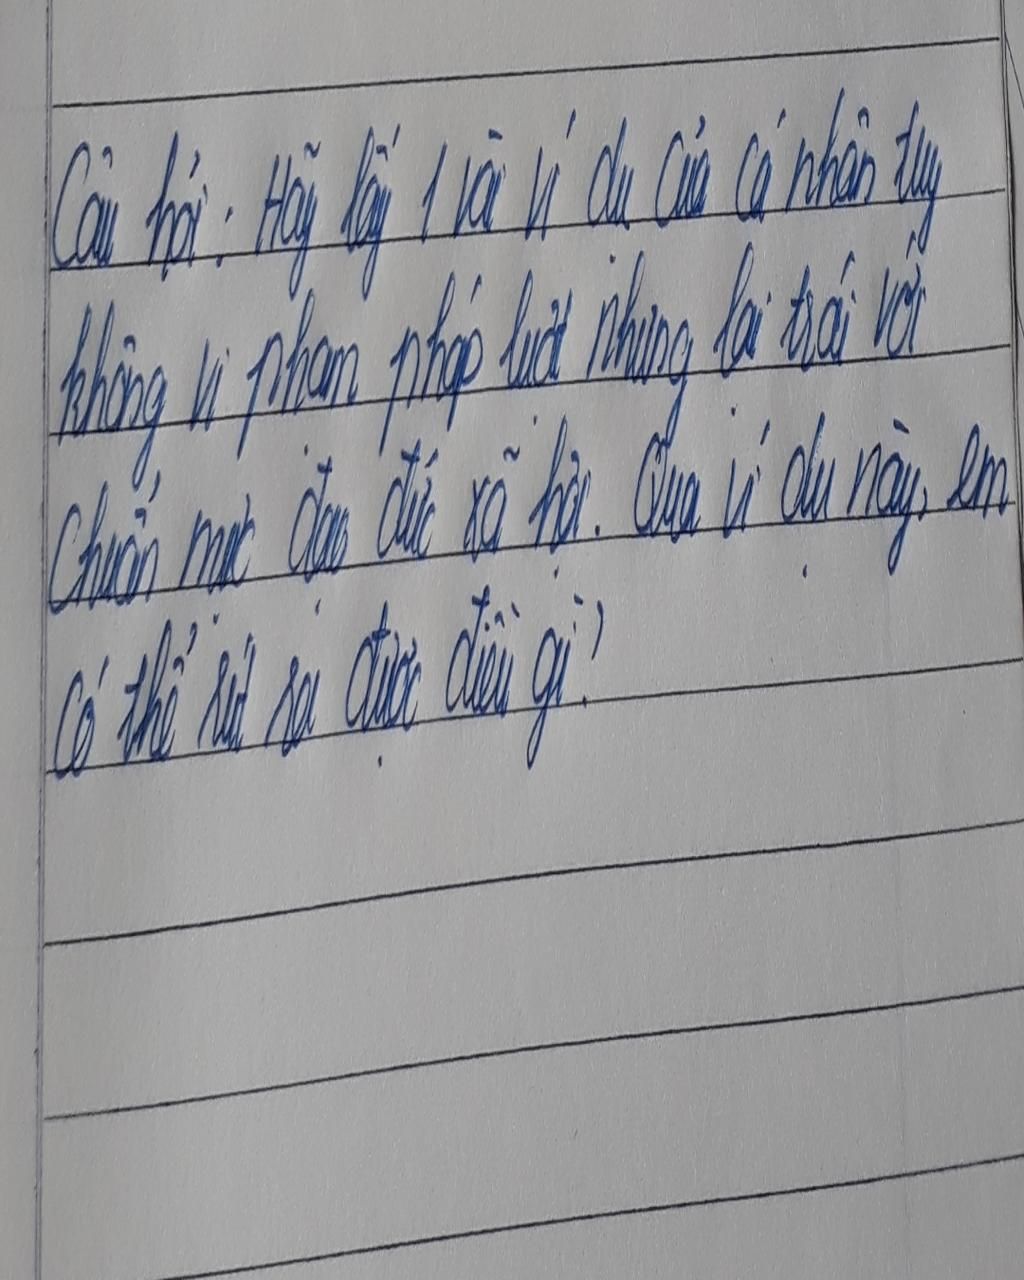 Câu hỏi: Hãy lấy 1 vài ví dụ của cá nhân tuy
không vi phạm pháp luật nhưng lại trái với
chuẩn mực đạo đức xã hội. Qua ví dụ này, em
có thể rút ra được điều gì?